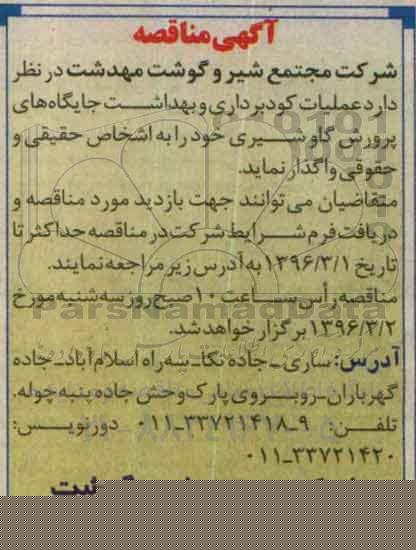 آگهی مناقصه
شرکت مجتمع شیر و گوشت مهدشت در نظر
دارد عملیات کودبرداری و بهداشت جایگاه‌های
پرورش گاو شیری خود را به اشخاص حقیقی و
حقوقی واگذار نماید.
متقاضیان می‌توانند جهت بازدید مورد مناقصه و
دریافت فرم شرایط شرکت در مناقصه حداکثر تا
تاریخ ۱۳۹۶/۳/۱ به آدرس زیر مراجعه نمایند.
مناقصه رأس ساعت ۱۰ صبح روز سه شنبه مورخ
۱۳۹۶/۳/۲ برگزار خواهد شد.
آدرس: ساری ـ جاده نکا ـ سه راه اسلام آباد ـ جاده
گهرباران ـ روبروی پارک وحش جاده پنبه چوله.
تلفن: ۹ـ۳۳۷۲۱۴۱۸ـ۰۱۱ دورنویس:
۳۳۷۲۱۴۲۰ـ۰۱۱
ParsNamadData